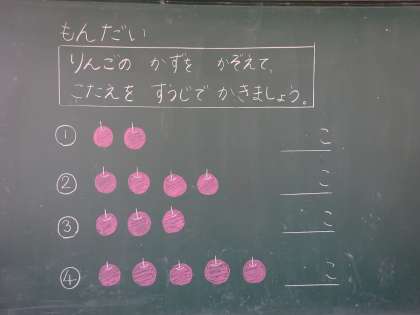 もんだい
りんごの かずを かぞえて、
こたえを すうじで かきましょう。
① こ
② こ
③ こ
④ こ